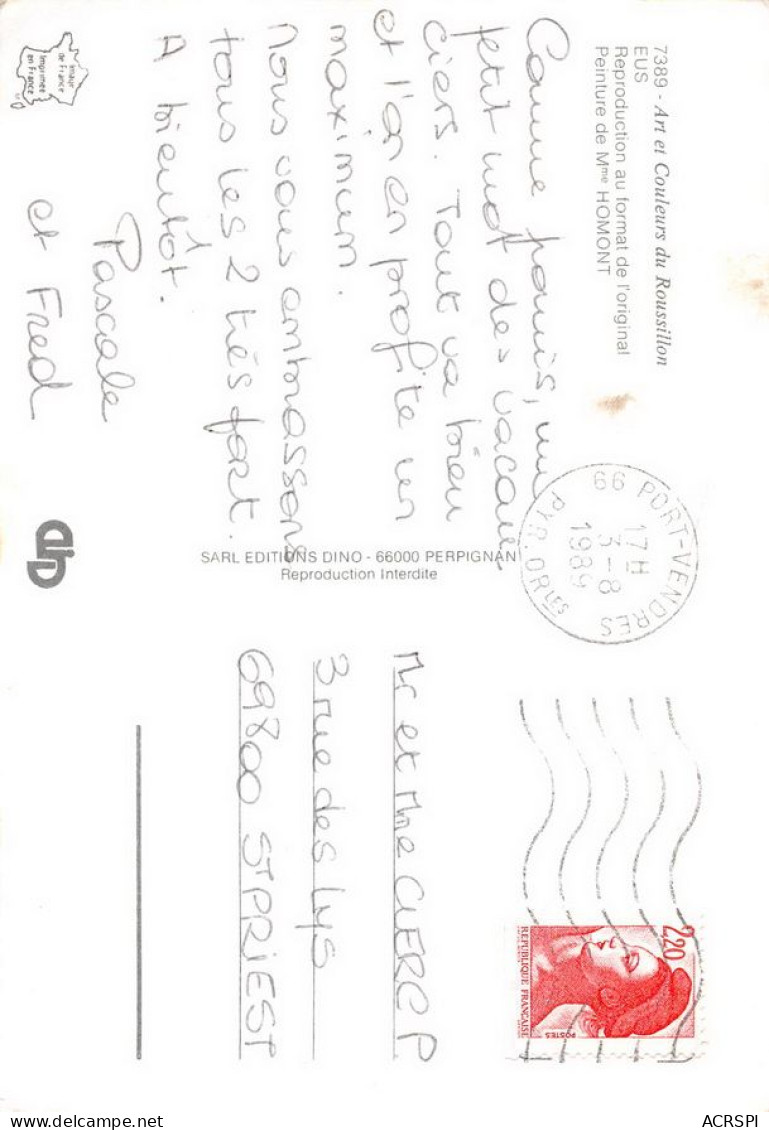 7389 - Art et Couleurs du Roussillon
EUS
Reproduction au format de l'original
Peinture de Mme HOMONT
Comme promis, un
petit mot des vacan
ciers. Tout va bien
et l'on en profite un
maximum.
Nous vous embrassons
tous les 2 très fort.
A bientôt.
Pascale
et Fred
Image
de France
Imprimée
en France
SARL EDITIONS DINO - 66000 PERPIGNAN
Reproduction Interdite
66 PORT-VENDRES
17H
3-8
1989
PYR. ORles
2,20
REPUBLIQUE FRANÇAISE
POSTES
Mr et Mme CLERC P
3 rue des Lys
69800 ST PRIEST
ACRSPI